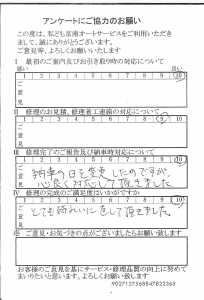 アンケートにご協力のお願い
この度は、私ども京南オートサービスをご利用いただき
まして、誠にありがとうございます。
ご意見等、よろしくお願いいたします
Ⅰ 最初のご案内及びお引き取り時の対応について
悪い 良い
1 2 3 4 5 6 7 8 9 10
ご意見
Ⅱ 修理のお見積、修理着工連絡の対応について
1 2 3 4 5 6 7 8 9 10
ご意見
Ⅲ 修理完了のご報告及び納車時対応について
1 2 3 4 5 6 7 8 9 10
ご意見
納車の日を変更したのですが、
心良く対応して頂きました。
Ⅳ 修理の完成のご満足度はいかがですか
1 2 3 4 5 6 7 8 9 10
ご意見
とても綺れいに直して頂きました。
※ご意見・お気づきの点がございましたらお願い致します
お客様のご意見を基にサービス・修理品質の向上に努めて
まいりたいと思います。よろしくお願い致します。